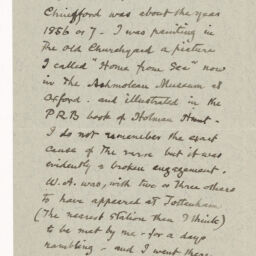 Chingford was about the year
1856 or 7 - I was painting in
the old Churchyard a picture
I called "Home from Sea" now
in the Ashmolean Museum at
Oxford - and illustrated in the
P.R.B book of Holman Hunt -
I do not remember the exact
cause of the verse but it was
evidently a broken engagement.
W.A. was, with two or three others
to have appeared at Tottenham
(The nearest station then I think)
to be met by me - for a days
rambling - and I went there